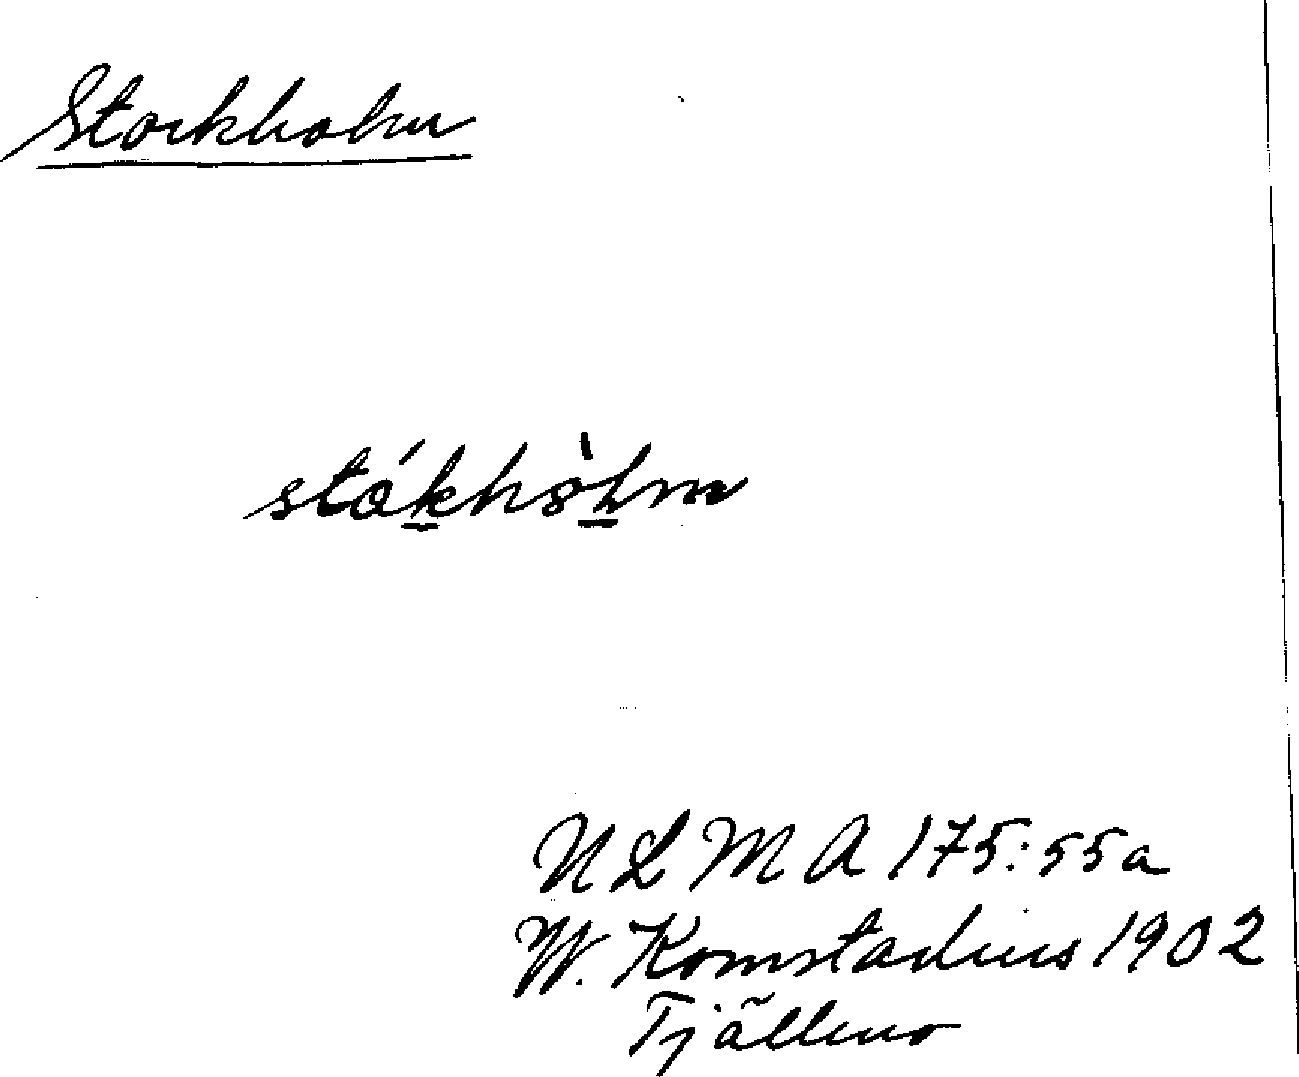 Stockholm
stókhòlm
ULMA 175:55a
W. Komstadius 1902
Tjällmo